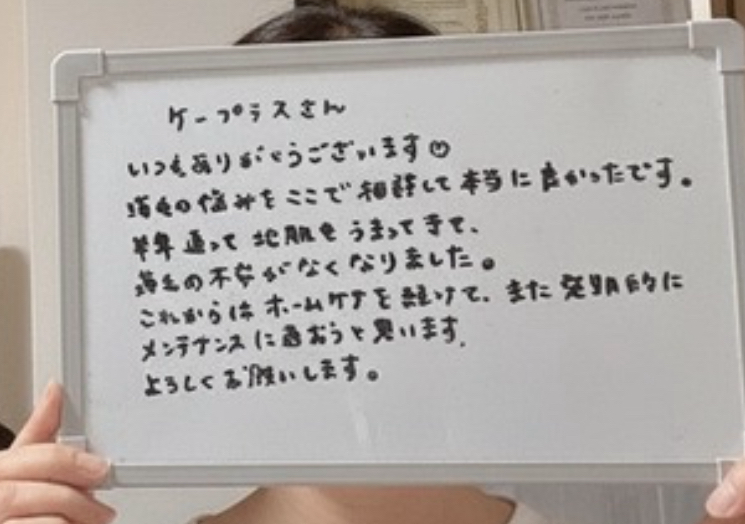 ケープラスさん
いつもありがとうございます
薄毛の悩みをここで相談して本当に良かったです。
半年通って地肌もうまってきて、
薄毛の不安がなくなりました。
これからはホームケアを続けて、また定期的に
メンテナンスに通おうと思います。
よろしくお願いします。